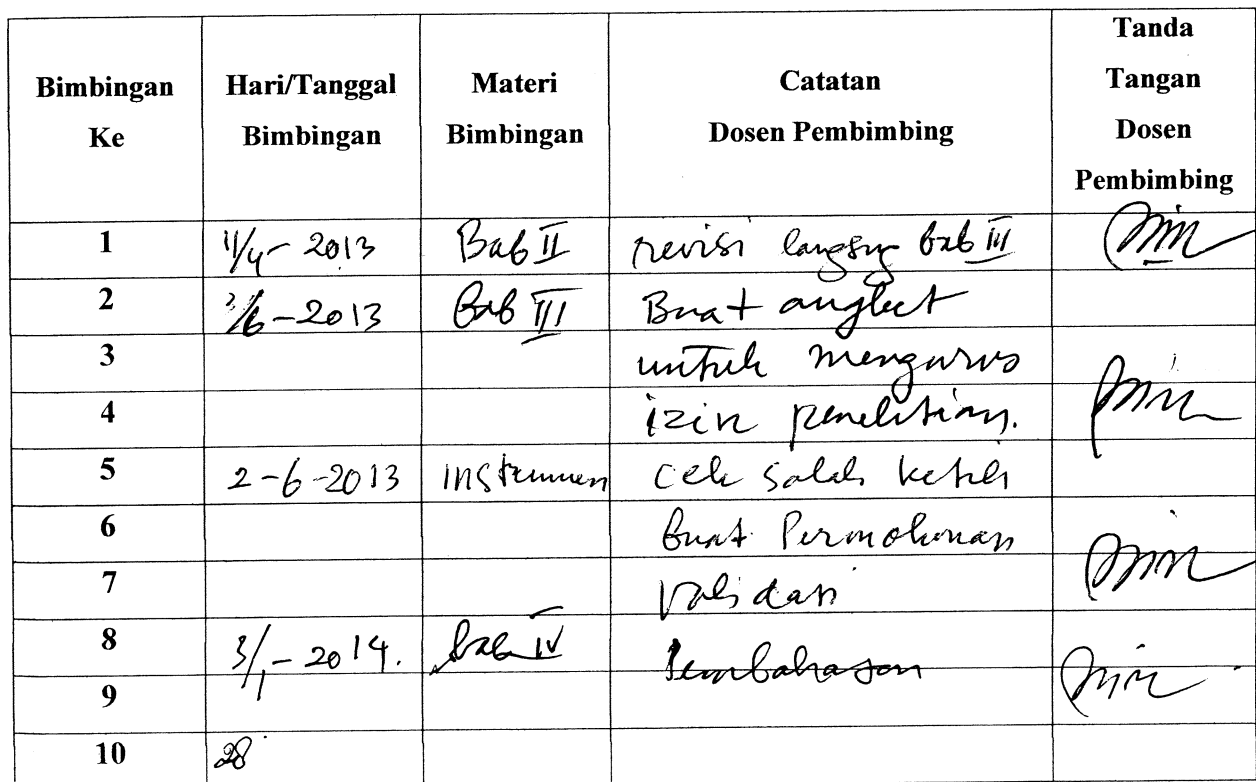 Bimbingan Ke
Hari/Tanggal Bimbingan
Materi Bimbingan
Catatan Dosen Pembimbing
Tanda Tangan Dosen Pembimbing
1 11/4- 2013 Bab II revisi bab III
2 /6-2013 Bab III Buat angket
3 untuk mengurus
4 izin penelitian.
5 2-6-2013 instrumen cek salah ketik
6 buat Permohonan
7 validasi
8 3/1-2014. bab IV Pembahasan
9
10 28